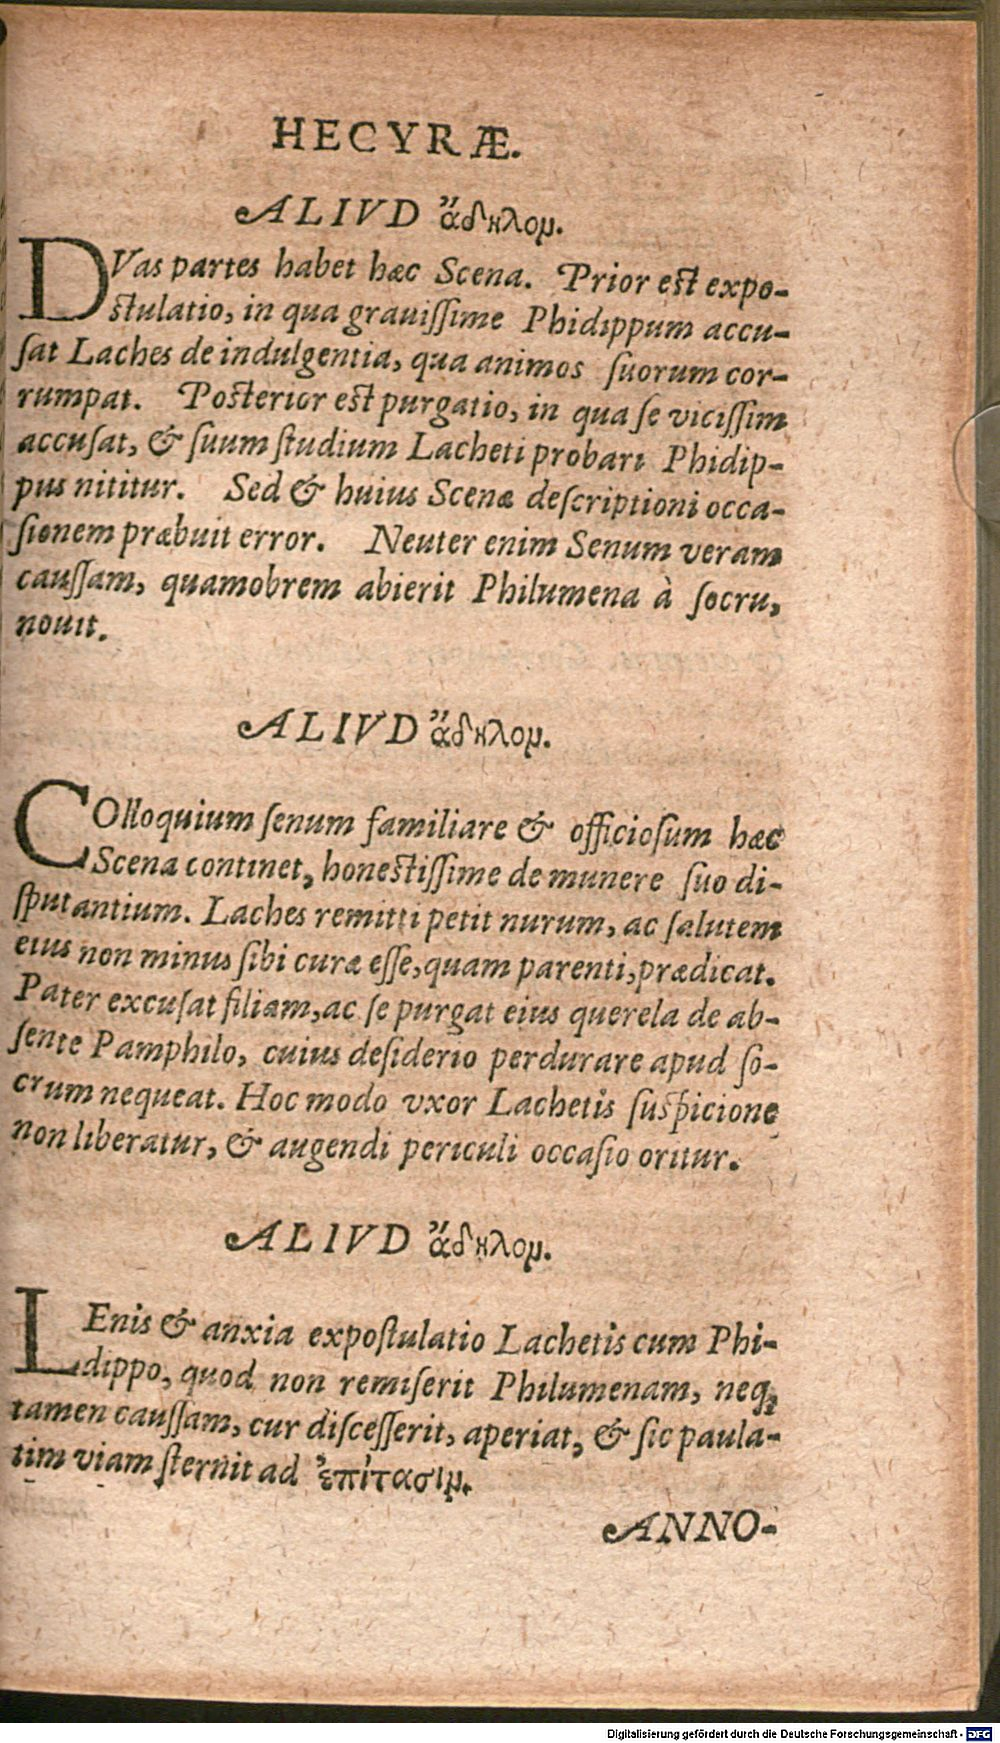 HECYRÆ.
ALIVD ἄδηλομ.
DVas partes habet hæc Scena. Prior est expo-
stulatio, in qua grauiſſime Phidippum accu-
ſat Laches de indulgentia, qua animos ſuorum cor-
rumpat. Posterior est purgatio, in qua ſe viciſſim
accuſat, & ſuum ſtudium Lacheti probari Phidip-
pus nititur. Sed & huius Scenæ deſcriptioni occa-
ſionem præbuit error. Neuter enim Senum veram
cauſſam, quamobrem abierit Philumena à ſocru,
nouit.
ALIVD ἄδηλομ.
COlloquium ſenum familiare & officioſum hæc
Scena continet, honestiſſime de munere ſuo di-
ſputantium. Laches remitti petit nurum, ac ſalutem
eius non minus ſibi curæ eſſe, quam parenti, prædicat.
Pater excuſat filiam, ac ſe purgat eius querela de ab-
ſente Pamphilo, cuius deſiderio perdurare apud ſo-
crum nequeat. Hoc modo vxor Lachetis ſuſpicione
non liberatur, & augendi periculi occaſio oritur.
ALIVD ἄδηλομ.
LEnis & anxia expoſtulatio Lachetis cum Phi-
dippo, quod non remiſerit Philumenam, neq;
tamen cauſſam, cur diſceſſerit, aperiat, & ſic paula-
tim viam ſternit ad ἐπίτασιμ.
ANNO-
Digitalisierung gefördert durch die Deutsche Forschungsgemeinschaft - DFG